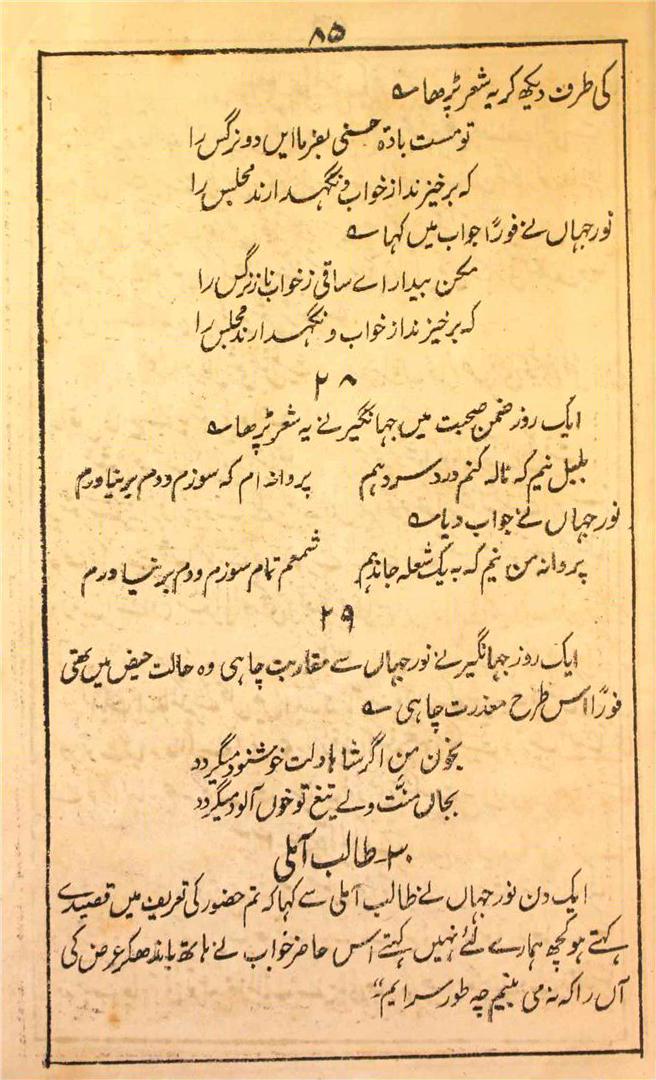 ۸۵
کی طرف دیکھ کر یہ شعر پڑھا ؎
تو مست بادۂ حسنی بفرما ایں دو نرگس را
کہ برخیزند از خواب و نگہدارند مجلس را
نورجہاں نے فوراً جواب میں کہا ؎
مکن بیدار اے ساقی ز خواب ناز نرگس را
کہ برخیزند از خواب و نگہدارند مجلس را
۲۸
ایک روز ضمن صحبت میں جہانگیر نے یہ شعر پڑھا ؎
بلبل نیم کہ نالہ کنم درد سر دہم پروانہ ام کہ سوزم و دم بر نیاورم
نورجہاں نے جواب دیا ؎
پروانہ من نیم کہ بہ یک شعلہ جاں دہم شمعم تمام سوزم و دم بر نیاورم
۲۹
ایک روز جہانگیر نے نورجہاں سے مقاربت چاہی وہ حالت حیض میں تھی
فوراً اس طرح معذرت چاہی ؎
بخون من اگر شاہا دلت خوشنود میگردد
بجاں منّت ولے تیغ تو خوں آلود میگردد
۳۰۔ طالب آملی
ایک دن نورجہاں نے طالب آملی سے کہا کہ تم حضور کی تعریف میں قصیدے
کہتے ہو کچھ ہمارے لئے نہیں کہتے اس حاضر جواب نے ہاتھ باندھکر عرض کی
آں را کہ نہ می بینم چہ طور سرایم"